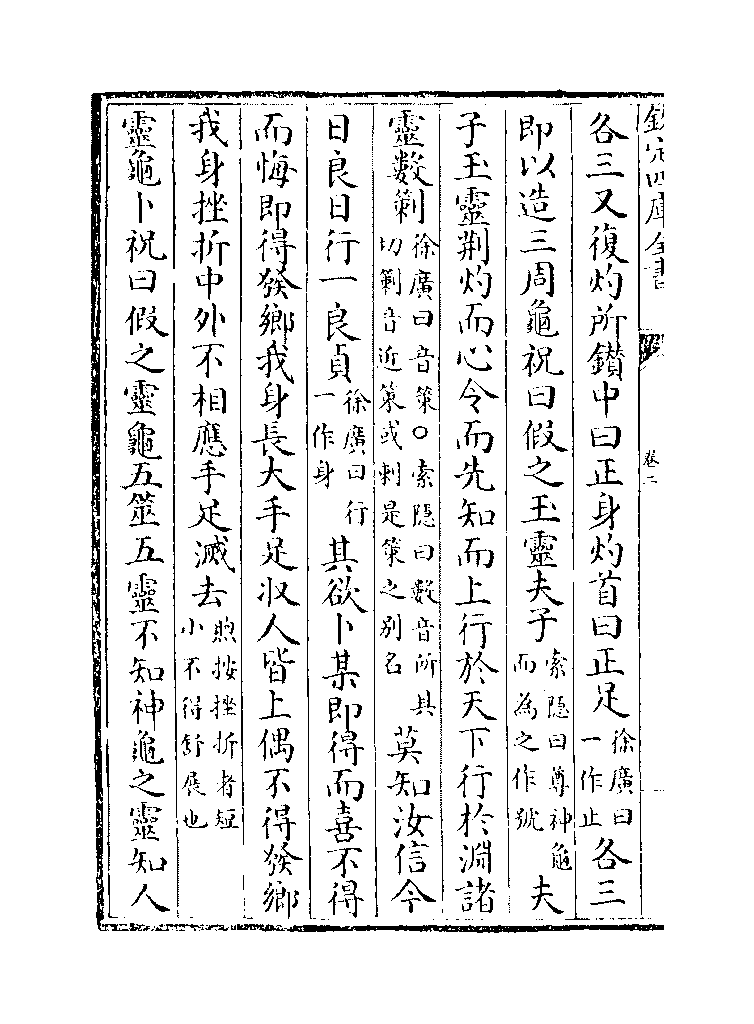 欽定四庫全書
卷二
各三又復灼所鑚中曰正身灼首曰正足徐廣曰一作止各三
即以造三周龜祝曰假之玉靈夫子索隠曰尊神龜而為之作號夫
子玉靈荆灼而心令而先知而上行於天下行於淵諸
靈數𥳽徐廣曰音策○索隠曰數音所具切𥳽音近策或刺是策之别名莫知汝信今
日良日行一良貞徐廣曰行一作身其欲卜某即得而喜不得
而悔即得發鄉我身長大手足收人皆上偶不得發鄉
我身挫折中外不相應手足滅去煦按挫折者短小不得舒展也
靈龜卜祝曰假之靈龜五筮五靈不知神龜之靈知人